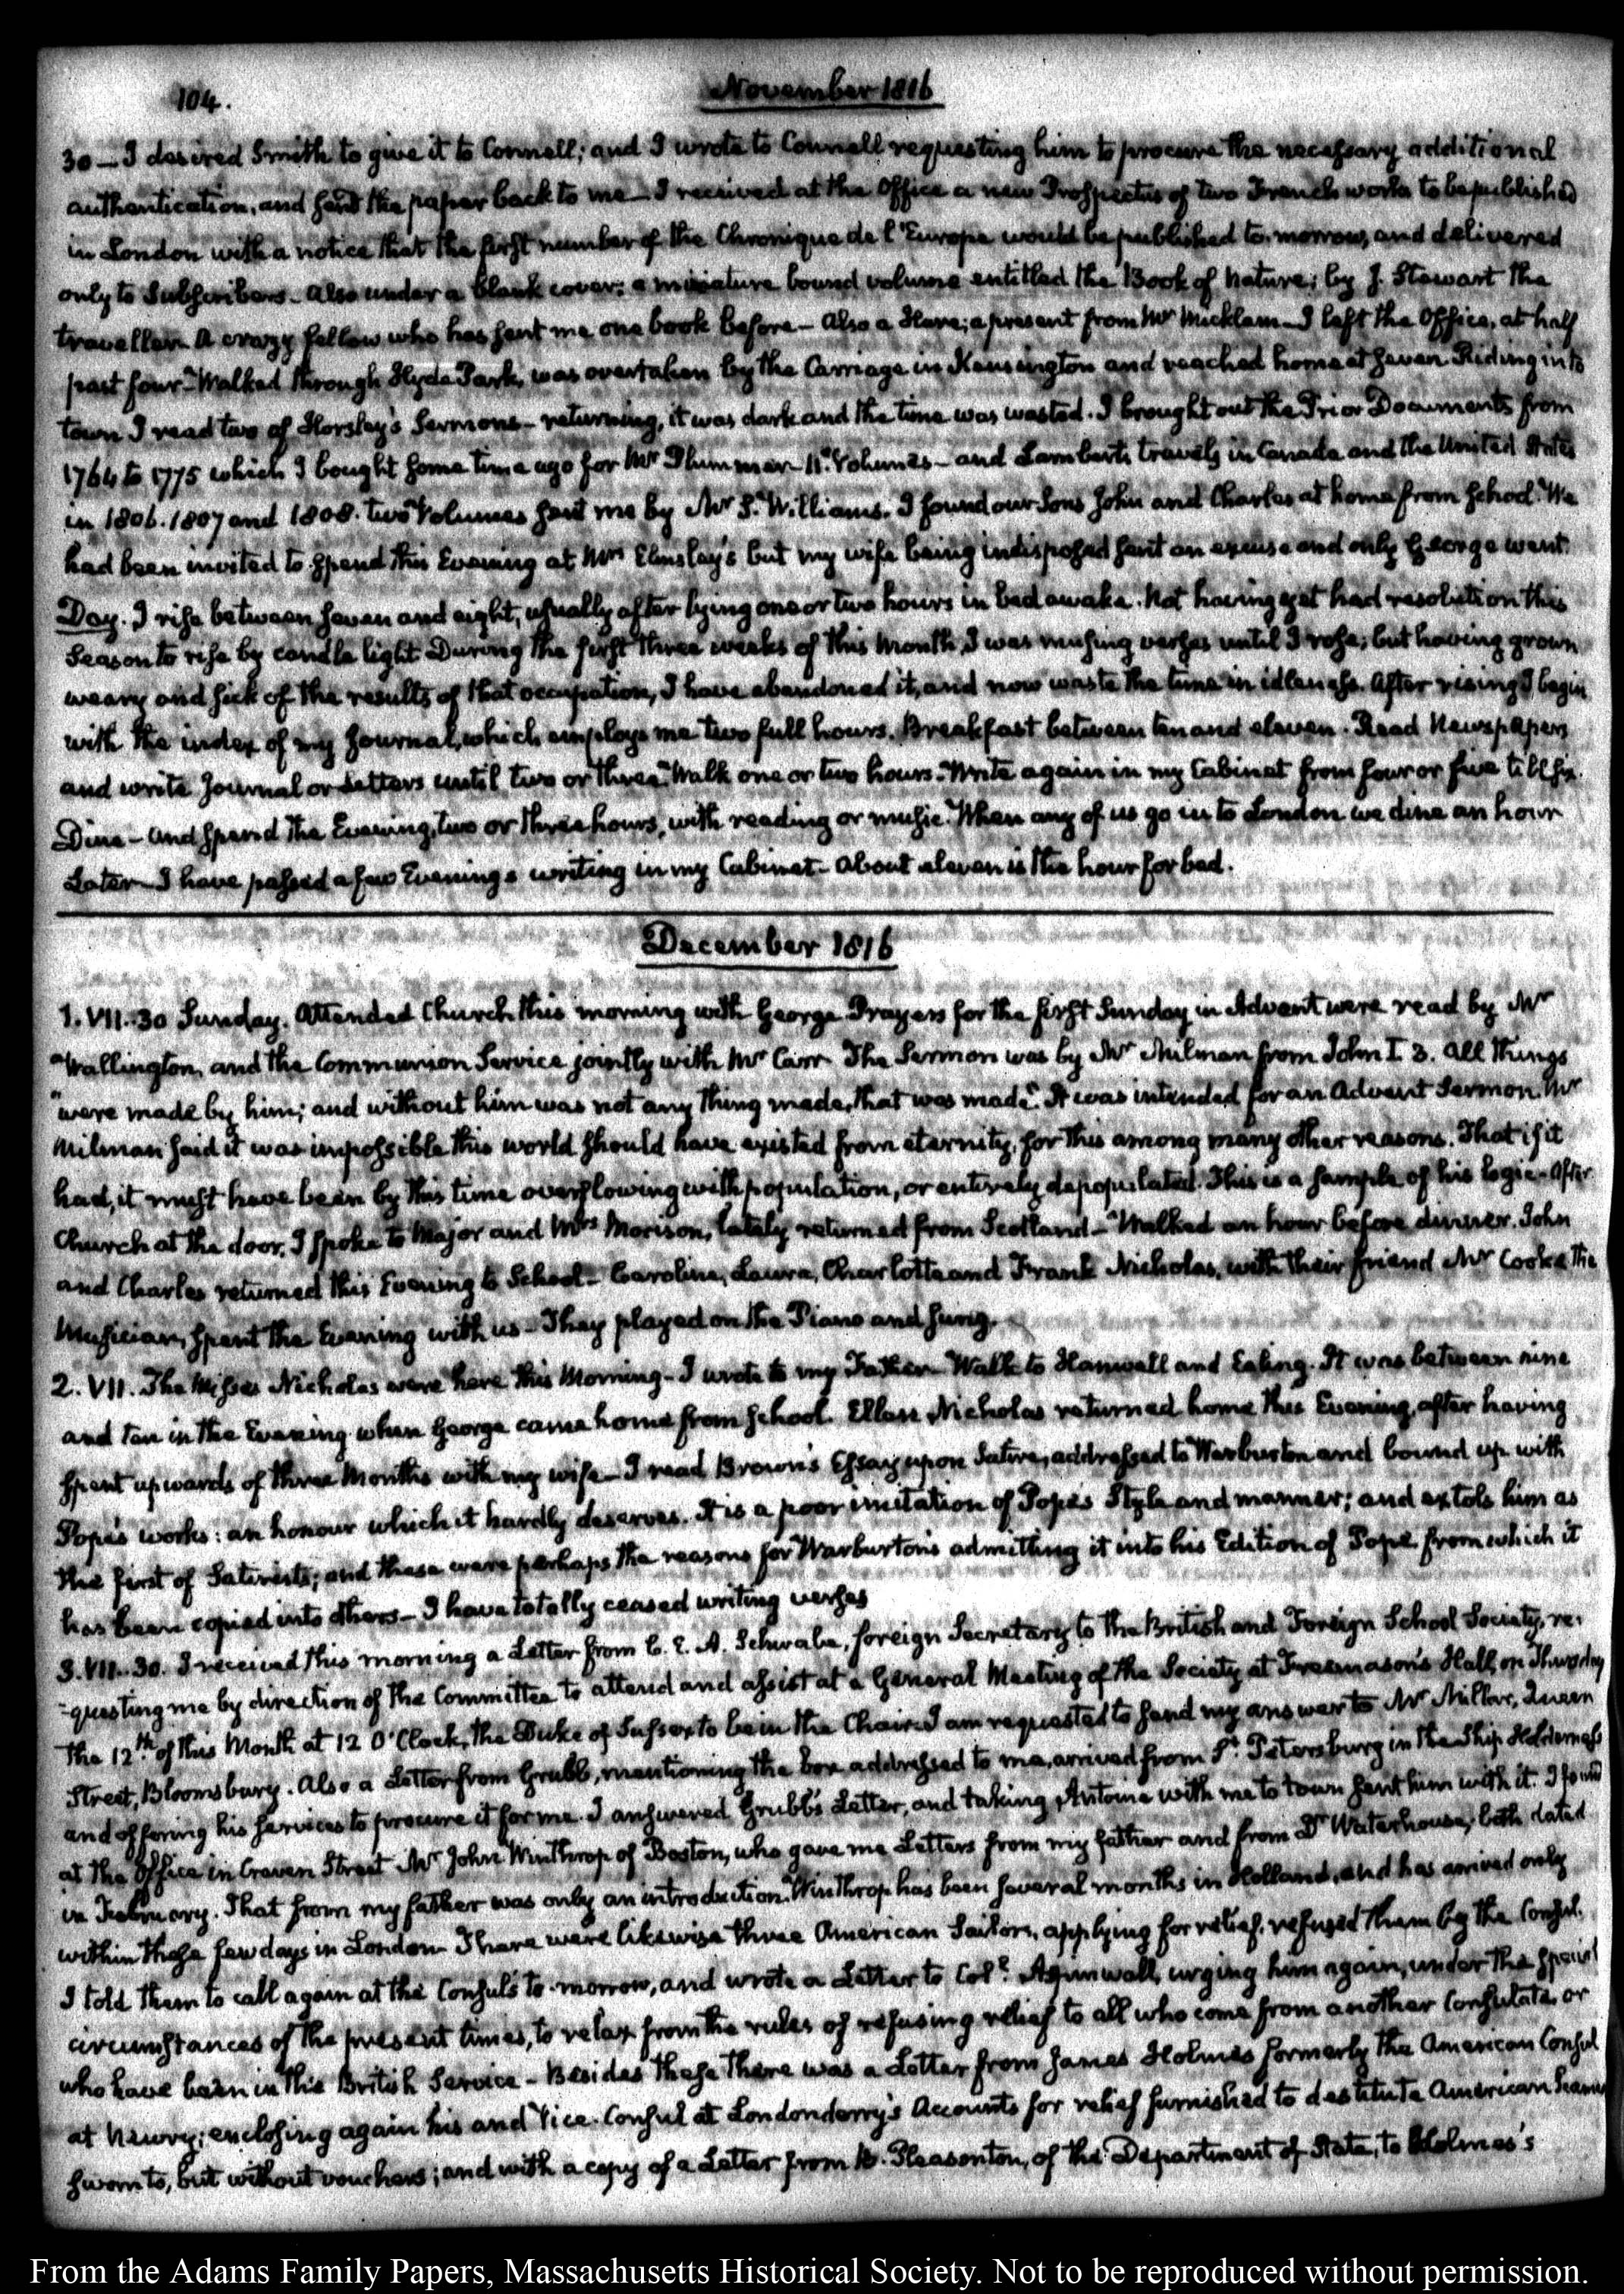 104.
November 1816
30 — I desired Smith to give it to Connell; and I wrote to Connell requesting him to procure the necessary additional
authentication, and send the paper back to me — I received at the Office a new Prospectus of two French works to be published
in London with a notice that the first number of the Chronique de l'Europe would be published to-morrow, and delivered
only to Subscribers — Also under a blank cover; a miniature bound volume entitled the Book of Nature; by J. Stewart the
traveller. A crazy fellow who has sent me one book before — Also a Hare; a present from Mr Micklam — I left the Office, at half
past four — Walked through Hyde Park, was overtaken by the Carriage in Kensington and reached home at seven. Riding into
town I read two of Horsley's Sermons — returning, it was dark and the time was wasted. I brought out the Prior Documents from
1764 to 1775 which I bought some time ago for Mr Plummer — 11 Volumes — and Lambert's travels in Canada and the United States
in 1806. 1807 and 1808. two Volumes sent me by Mr S. Williams. I found our Sons John and Charles at home from School. We
had been invited to spend this Evening at Mrs Elmslay's but my wife being indisposed sent an excuse and only George went.
Day. I rise between seven and eight, usually after lying one or two hours in bed awake. Not having yet had resolution this
Season to rise by candle light. During the first three weeks of this Month, I was musing verses until I rose; but having grown
weary and sick of the results of that occupation, I have abandoned it, and now waste the time in idleness. After rising I begin
with the index of my Journal, which employs me two full hours. Breakfast between ten and eleven. Read Newspapers
and write Journal or Letters until two or three. Walk one or two hours. Write again in my Cabinet from four or five till six.
Dine — and spend the Evening, two or three hours, with reading or music. When any of us go in to London we dine an hour
Later — I have passed a few Evenings writing in my Cabinet — About eleven is the hour for bed.
December 1816
1. VII..30 Sunday. Attended Church this morning with George. Prayers for the first Sunday in Advent were read by Mr
Wallington, and the Communion Service jointly with Mr Carr. The Sermon was by Mr Milman from John I. 3. All things
"were made by him; and without him was not any thing made, that was made". It was intended for an Advent Sermon. Mr
Milman said it was impossible this world should have existed from eternity, for this among many other reasons. That if it
had, it must have been by this time overflowing with population, or entirely depopulated. This is a sample of his logic — After
Church at the door, I spoke to Major and Mrs Morison, lately returned from Scotland — Walked an hour before dinner. John
and Charles returned this Evening to School — Caroline, Laura, Charlotte and Frank Nicholas, with their friend Mr Cooke the
Musician, spent the Evening with us — They played on the Piano and sung.
2. VII. The Misses Nicholas were here this Morning — I wrote to my Father — Walk to Hanwell and Ealing. It was between nine
and ten in the Evening when George came home from School. Ellen Nicholas returned home this Evening, after having
spent upwards of three Months with my wife — I read Brown's Essay upon Satire, addressed to Warburton and bound up with
Pope's works: an honour which it hardly deserves. It is a poor imitation of Pope's Style and manner; and extols him as
the first of Satirists; and these were perhaps the reasons for Warburton's admitting it into his Edition of Pope from which it
has been copied into others — I have totally ceased writing verses
3. VII..30. I received this morning a Letter from C. E. A. Schwabe, foreign Secretary to the British and Foreign School Society, re-
-questing me by direction of the Committee to attend and assist at a General Meeting of the Society at Freemason's Hall, on Thursday
the 12th of this Month at 12 O'Clock, the Duke of Sussex to be in the Chair. I am requested to send my answer to Mr Millar, Queen
Street, Bloomsbury. Also a Letter from Grubb, mentioning the box addressed to me, arrived from St Petersburg in the Ship Holderness
and offering his services to procure it for me. I answered Grubb's Letter, and taking Antoine with me to town sent him with it. I found
at the Office in Craven Street Mr John Winthrop of Boston, who gave me Letters from my father and from Dr Waterhouse; both dated
in February. That from my father was only an introduction. Winthrop has been several months in Holland, and has arrived only
within these few days in London. There were likewise three American Sailors, applying for relief, refused them by the Consul.
I told them to call again at the Consul's to-morrow, and wrote a Letter to Coll. Aspinwall, urging him again, under the special
circumstances of the present times, to relax from the rules of refusing relief to all who come from another Consulate, or
who have been in the British Service — Besides these there was a Letter from James Holmes formerly the American Consul
at Newry; enclosing again his and Vice-Consul at Londonderry's Accounts for relief furnished to destitute American Seamen
sworn to, but without vouchers; and with a copy of a Letter from S. Pleasonton, of the Department of State, to Holmes's
From the Adams Family Papers, Massachusetts Historical Society. Not to be reproduced without permission.